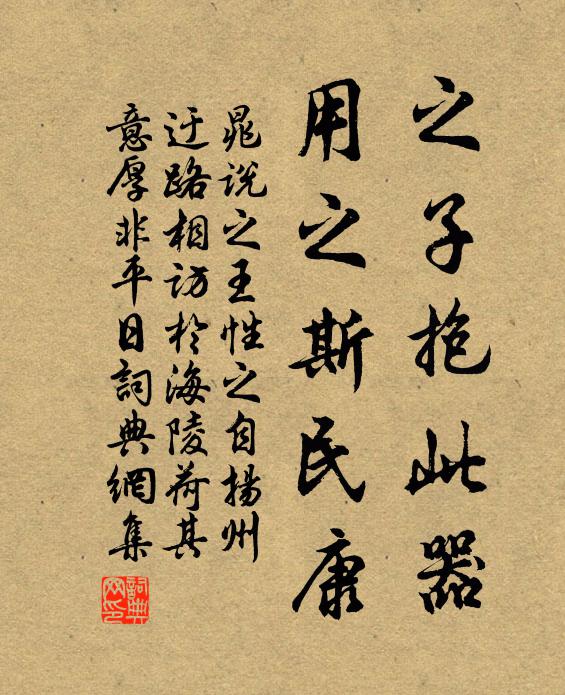 之子抱此器
用之斯民康
晁说之王性之自揚州
迂路相訪於海陵荷其
意厚非平日詞典網集
詞典网印